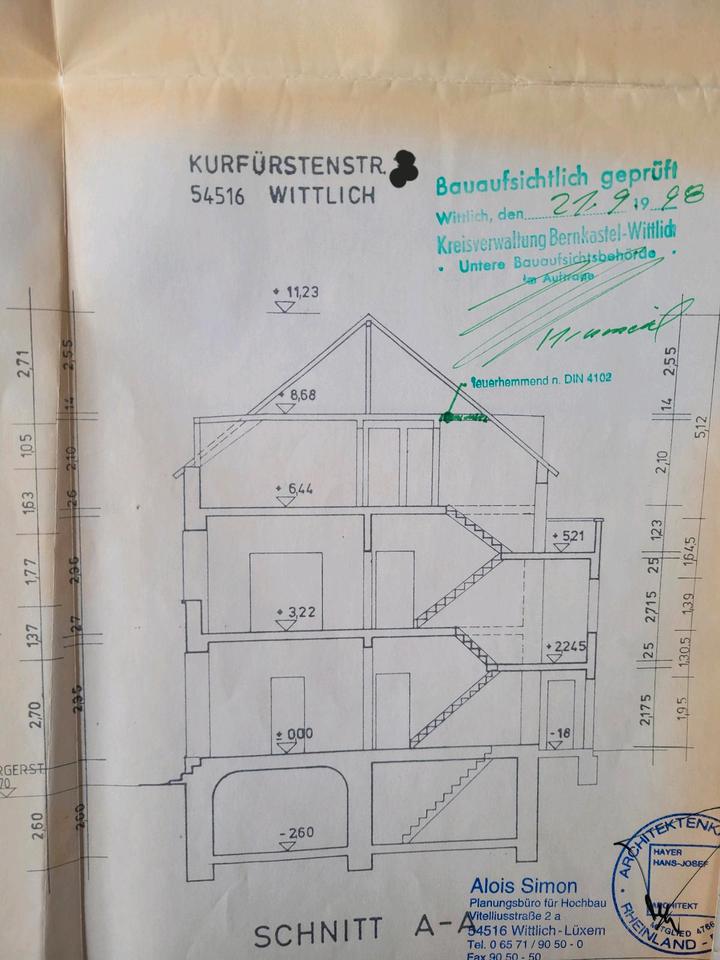 KURFÜRSTENSTR.
54516 WITTLICH
Bauaufsichtlich geprüft
Wittlich, den 21.9 19 98
Kreisverwaltung Bernkastel-Wittlich
• Untere Bauaufsichtsbehörde •
Im Auftrage
+ 11,23
feuerhemmend n. DIN 4102
+ 8,68
+ 6,44
+ 5,21
+ 3,22
+ 2,245
± 0,00
-18
-2,60
2,71
1,05
1,63
1,77
1,37
2,70
2,60
2,55
14
2,10
26
2,96
27
2,95
2,00
2,55
14
2,10
1,23
25
2,715
25
2,175
5,12
1,645
1,39
1,30.5
1,95
RGERST
70
SCHNITT A-A
Alois Simon
Planungsbüro für Hochbau
Vitelliusstraße 2 a
54516 Wittlich-Lüxem
Tel. 0 65 71 / 90 50 - 0
Fax 90 50 - 50
ARCHITEKTENKA
HAYER
HANS-JOSEF
ARCHITEKT
MITGLIED 4766
RHEINLAND -